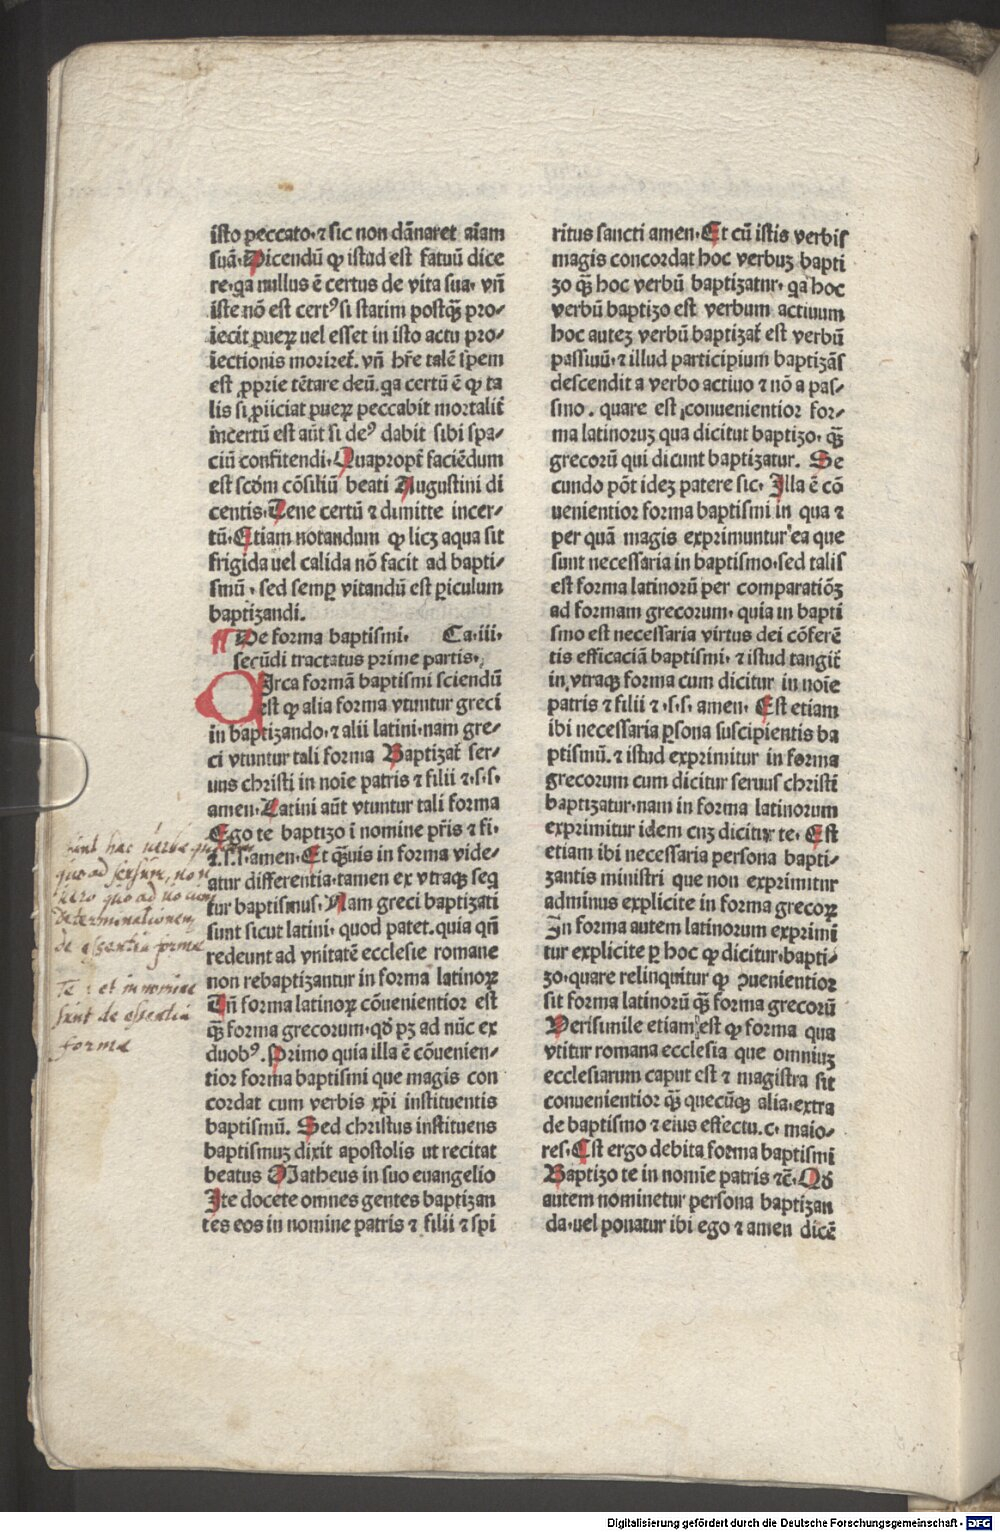 isto peccato· ⁊ sic non dãnaret aĩam
suã· Dicendũ ꝙ istud est fatuũ dice
re· qa nullus ẽ certus de vita sua· vñ
iste nõ est certꝰ si statim postq̃ꝫ pro⸗
iecit pueꝝ uel esset in isto actu pro⸗
iectionis moriret̃. vñ hr̃e talẽ spem
est ꝓprie tẽtare deũ. qa certũ ẽ ꝙ ta
lis si ꝓiiciat pueꝝ peccabit mortalit̃
incertũ est aũt si deꝰ dabit sibi spa⸗
ciũ confitendi· Quapropt̃ faciẽdum
est scd̃m cõsiliũ beati Augustini di
centis· Tene certũ ⁊ dimitte incer⸗
tũ· Etiam notandum ꝙ licꝫ aqua sit
frigida uel calida nõ facit ad bapti⸗
smũ · sed semꝑ vitandũ est ꝑiculum
baptizandi.
¶ De forma baptismi· Ca·iii·
secũdi tractatus prime partis·
CIrca formã baptismi sciendũ
est ꝙ alia forma vtuntur greci
in baptizando· ⁊ alii latini· nam gre⸗
ci vtuntur tali forma Baptizat̃ ser⸗
uus christi in noĩe patris ⁊ filii ⁊·s·s·
amen· Latini aũt vtuntur tali forma
Ego te baptizo ĩ nomine pr̃is ⁊ fi·
⁊.s.s· amen· Et q̃ꝫuis in forma vide⸗
atur differentia· tamen ex vtraqꝫ seq
tur baptismus· Nam greci baptizati
sunt sicut latini· quod patet. quia qñ
redeunt ad vnitatẽ ecclesie romane
non rebaptizantur in forma latinoꝝ
Tñ forma latinoꝝ cõuenientior est
q̃ꝫ forma grecorum· qð pꝫ ad nũc ex
duobꝰ. Primo quia illa ẽ cõuenien⸗
tior forma baptismi que magis con
cordat cum verbis xp̃i instituentis
baptismũ. Sed christus instituens
baptismuꝫ dixit apostolis ut recitat
beatus Matheus in suo euangelio
Ite docete omnes gentes baptizan
tes eos in nomine patris ⁊ filii ⁊ spi
sunt hac verba
quo ad sensum, non
vero quo ad
determinationem
de essentia forme
Te : et in nomine
sunt de essentia
forme
ritus sancti amen· Et cũ istis verbis
magis concordat hoc verbuꝫ bapti
zo q̃ꝫ hoc verbũ baptizatur· qa hoc
verbũ baptizo est verbum actiuum
hoc auteꝫ verbũ baptizat̃ est verbũ
passiuũ· ⁊ illud participium baptizãs
descendit a verbo actiuo ⁊ nõ a pas⸗
siuo . quare est conuenientior for⸗
ma latinoruꝫ qua dicitut baptizo· q̃ꝫ
grecorũ qui dicunt baptizatur. Se
cundo põt ideꝫ patere sic· Illa ẽ cõ
uenientior forma baptismi in qua ⁊
per quã magis exprimuntur ea que
sunt necessaria in baptismo· sed talis
est forma latinorũ per comparatiõꝫ
ad formam grecorum· quia in bapti
smo est necessaria virtus dei cõferẽ
tis efficaciã baptismi· ⁊ istud tangit̃
in vtraqꝫ forma cum dicitur in noĩe
patris ⁊ filii ⁊·s·s· amen· Est etiam
ibi necessaria ꝑsona suscipientis ba
ptismũ. ⁊ istud exprimitur in forma
grecorum cum dicitur seruus christi
baptizatur· nam in forma latinorum
exprimitur idem cuꝫ dicitur te· Est
etiam ibi necessaria persona bapti⸗
zantis ministri que non exprimitur
adminus explicite in forma grecoꝝ
In forma autem latinorum exprimi
tur explicite ꝑ hoc ꝙ dicitur· bapti⸗
zo· quare relinquitur ꝙ ↄuenientior
sit forma latinorũ q̃ꝫ forma grecorũ
Verisimile etiam est ꝙ forma qua
vtitur romana ecclesia que omniuꝫ
ecclesiarum caput est ⁊ magistra sit
conuenientior q̃ꝫ quecũqꝫ alia· extra
de baptismo ⁊ eius effectu. c· maio⸗
res· Est ergo debita forma baptismi
Baptizo te in nomie patris ⁊c̃· Qð
autem nominetur persona baptizan
da· uel ponatur ibi ego ⁊ amen dicẽ
Digitalisierung gefördert durch die Deutsche Forschungsgemeinschaft - DFG